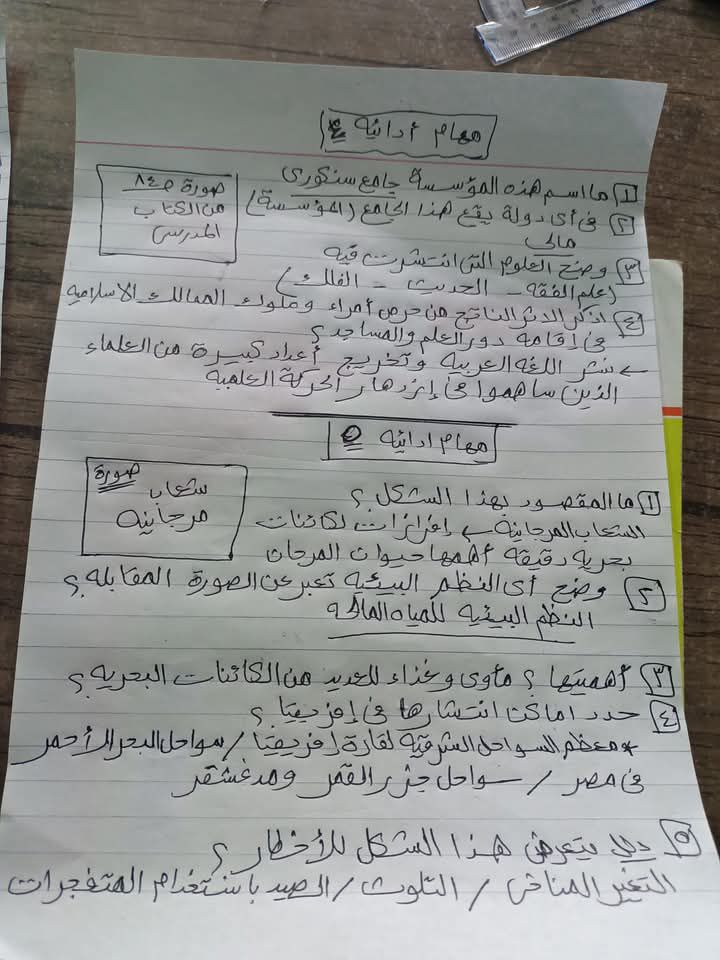 مهام أدائيه ٤
صورة ص٨٤
من الكتاب
المدرسى
١ ما اسم هذه المؤسسة جامع سنكورى
٢ فى أى دولة يقع هذا الجامع (المؤسسة)
مالى
٣ وضح العلوم التى انتشرت فيه
(علم الفقه - الحديث - الفلك)
٤ اذكر الاثر الناتج من حرص أمراء وملوك الممالك الاسلاميه
فى إقامة دور العلم والمساجد؟
← نشر اللغه العربيه وتخريج أعداد كبيرة من العلماء
الذين ساهموا فى إزدهار الحركة العلميه
مهام ادائيه ٥
صورة
شعاب
مرجانيه
١ ما المقصود بهذا الشكل؟
الشعاب المرجانيه ← إفرازات لكائنات
بحريه دقيقه أهمها حيوان المرجان
٢ وضح أى النظم البيئيه تعبر عن الصورة المقابله؟
النظم البيئيه للمياه المالحه
٣ أهميتها؟ مأوى وغذاء للعديد من الكائنات البحريه؟
٤ حدد اماكن انتشارها فى إفريقيا؟
* معظم السواحل الشرقيه لقارة إفريقيا / سواحل البحر الأحمر
فى مصر / سواحل جزر القمر ومدغشقر
٥ يتعرض هذا الشكل للأخطار؟
التغير المناخى / التلوث / الصيد باستخدام المتفجرات